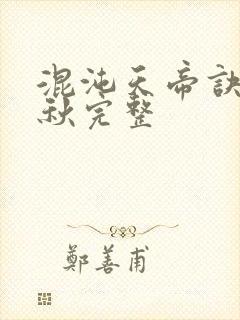 混沌天帝訣
秋完整
鄭善甫